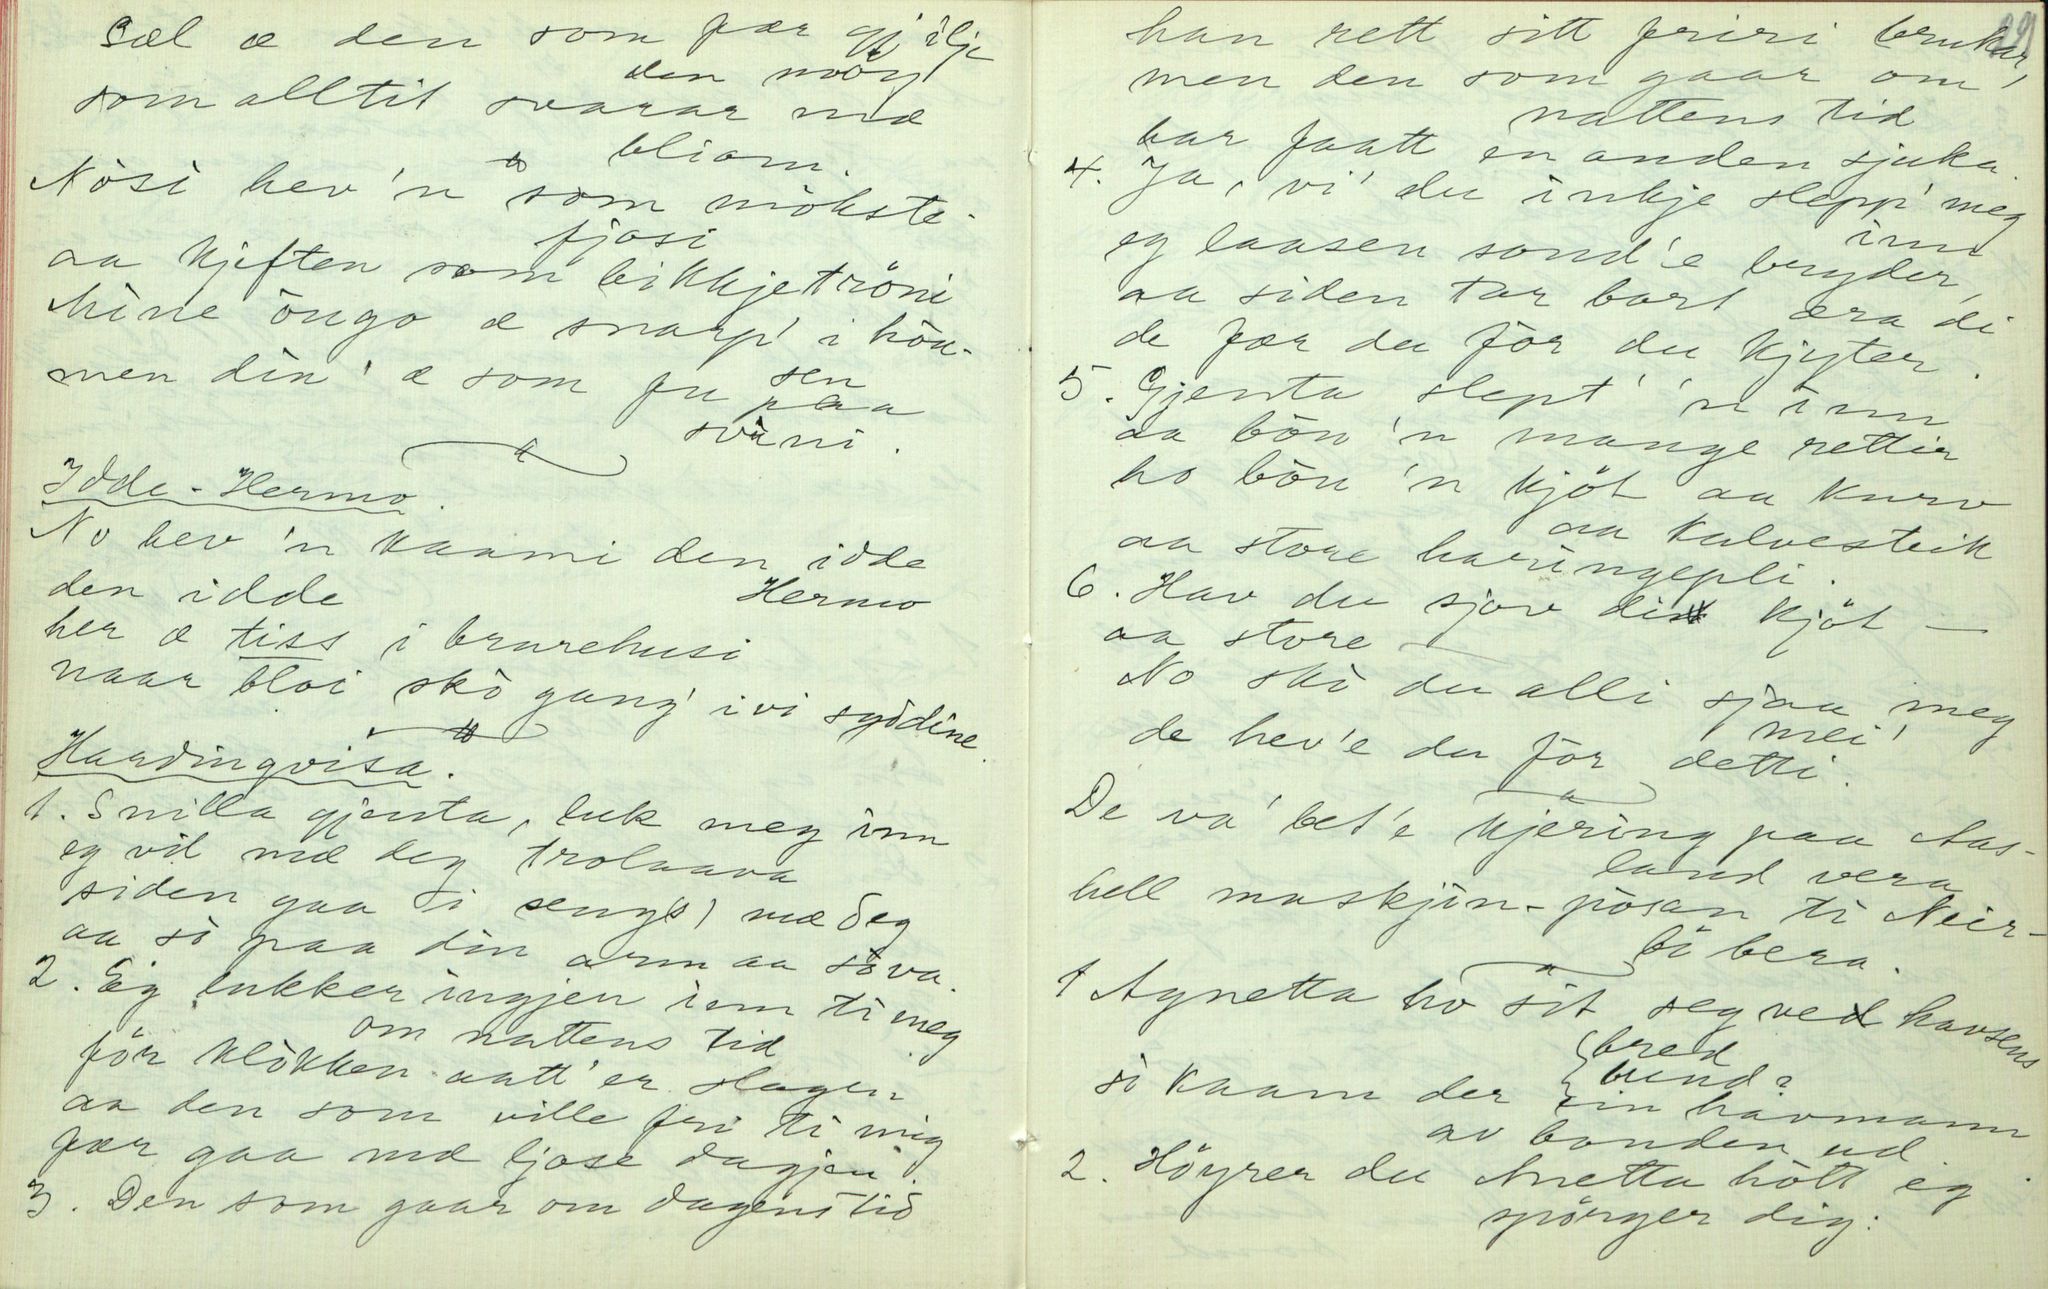 Sæl æ den som fær gj ilje
den möy
som alltit svarar mæ
bliom.
Nösi hev'n som mökste-
fjosi
aa kjeften som bikkjetröni
Mine öugo æ snarp' i höu-
sen
men din' æ som fu paa
svini.
Idde-Hermo.
No hev'n kaami den idde
Hermo
den idde
her æ tiss i brurehusi
naar bloi skò gang' ivi syddine.
Hardingvisa.
1. Snilla gjenta, luk meg inn
eg vil mæ deg trolaava
siden gaa i seng(s) mæ deg
aa so paa din arm aa sòva.
2. Eg lukker ingjen inn ti meg
om nattens tid
för klòkken aatt' er slagen
aa den som ville fri ti mig
fær gaa mæ ljose dagjen.
3. Den som gaar om dagens tid
29
han rett sitt friri brukar,
men den som gaar om
nattens tid
har faatt en anden sjuka.
4. Ja, vi' du inkje slepp' meg
inn
eg laasen sond'e bryder,
aa siden tar bort æra di
de fær du för du kjyter.
5. Gjenta slept' 'n inn
aa böu 'n mange rettir
ho böu 'n kjöt aa kurv
aa kalvesteik
aa store haringepli.
6. Hav du sjov dit kjöt —
aa store —
No skò du alli sjaa meg
mei'
de hev'e du för detti.
De va' bet'e kjering paa Aas-
land vera
hell maskjin-pòsan ti Neir-
bö bera.
1 Agnetta ho sit seg ved havsens
bred
bund?
sò kaam der ein havmann
av bonden ud
2. Höyrer du Anetta hòtt eg
spörger dig: